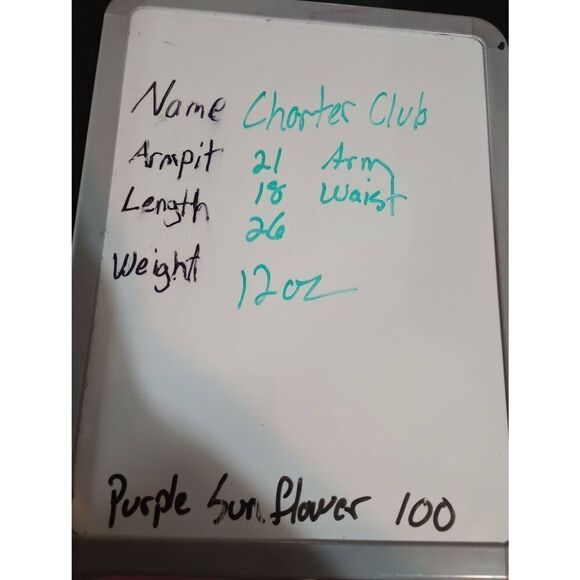 Name Charter Club
Armpit 21 Arm
Length 18 Waist
26
Weight 12oz
Purple Sunflower 100